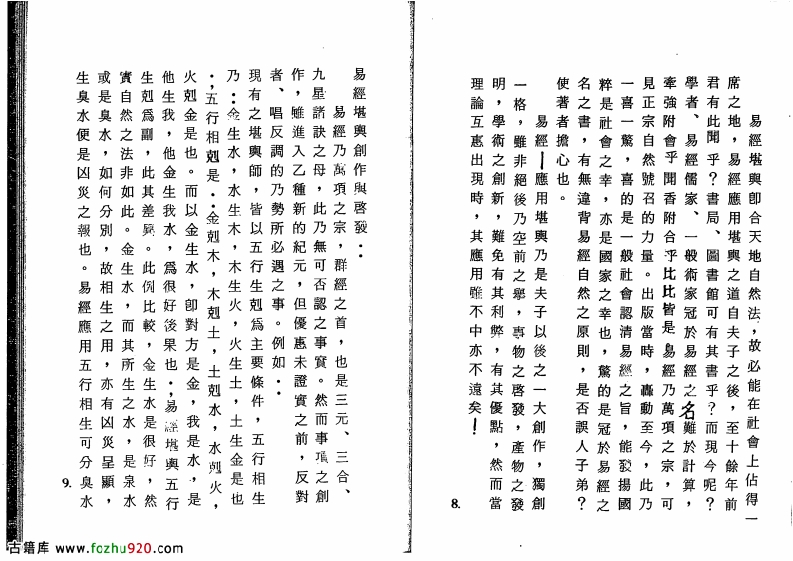 易經堪輿卽合天地自然法，故必能在社會上佔得一
席之地，易經應用堪輿之道自夫子之後，至十餘年前
君有此聞乎？書局、圖書館可有其書乎？而現今呢？
學者、易經儒家、一般術家冠於易經之名難於計算，
牽強附會乎聞香附合乎比比皆是，易經乃萬項之宗，可
見正宗自然號召的力量。出版當時，轟動至今，此乃
一喜一驚，喜的是一般社會認清易經之旨，能發揚國
粹是社會之幸，亦是國家之幸也，驚的是冠於易經之
名之書，有無違背易經自然之原則，是否誤人子弟？
使著者擔心也。
易經—應用堪輿乃是夫子以後之一大創作，獨創
一格，雖非絕後乃空前之擧，專物之啓發，產物之發
明，學術之創新，難免有其利弊，有其優點，然而當
理論互惠出現時，其應用雖不中亦不遠矣！
8.
易經堪輿創作與啓發：
易經乃萬項之宗，群經之首，也是三元、三合、
九星諸訣之母，此乃無可否認之事實。然而事項之創
作，雖進入乙種新的紀元，但優惠未證實之前，反對
者、唱反調的乃勢所必遇之事。例如：
現有之堪輿師，皆以五行生剋爲主要條件，五行相生
乃：金生水，水生木，木生火，火生土，土生金是也
，五行相剋是：金剋木，木剋土，土剋水，水剋火，
火剋金是也。而以金生水，卽對方是金，我是水，是
他生我，他金生我水，爲很好後果也，易經堪輿五行
生剋爲副，此其差異。此例比較，金生水是很好，然
實自然之法非如此。金生水，而其所生之水，是泉水
或是臭水，如何分別，故相生之用，亦有凶災呈顯，
生臭水便是凶災之報也。易經應用五行相生可分臭水
9.
古籍库 www.fozhu920.com